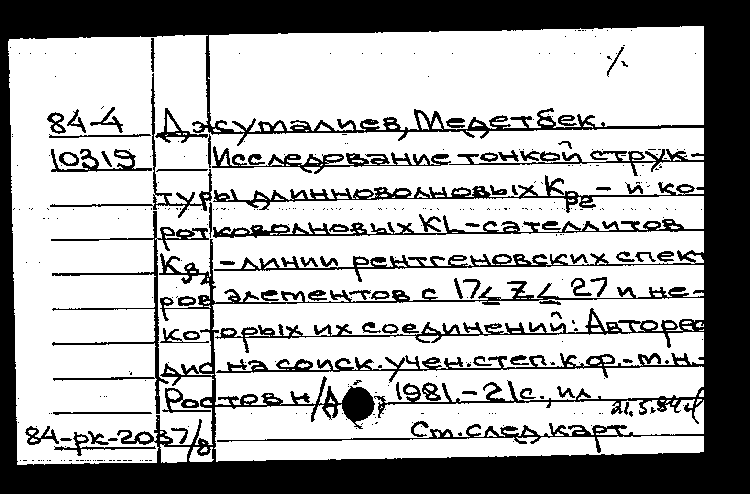 84-4 Джуталиев, Медетбек.
10319 Исследование тонкой струк-
туры длинноволновых Kβ2 - и ко-
ротковолновых KL-сателлитов
Kβ1 -линии рентгеновских спект
ров элементов с 17≤ Z ≤ 27 и не-
которых их соединений: Автореф
дис. на соиск. учен. степ. к.ф.-м.н.-
Ростов н/Д 1981.-21с., ил.
21.5.84
84-рк-2037/8 Ст. след. карт.